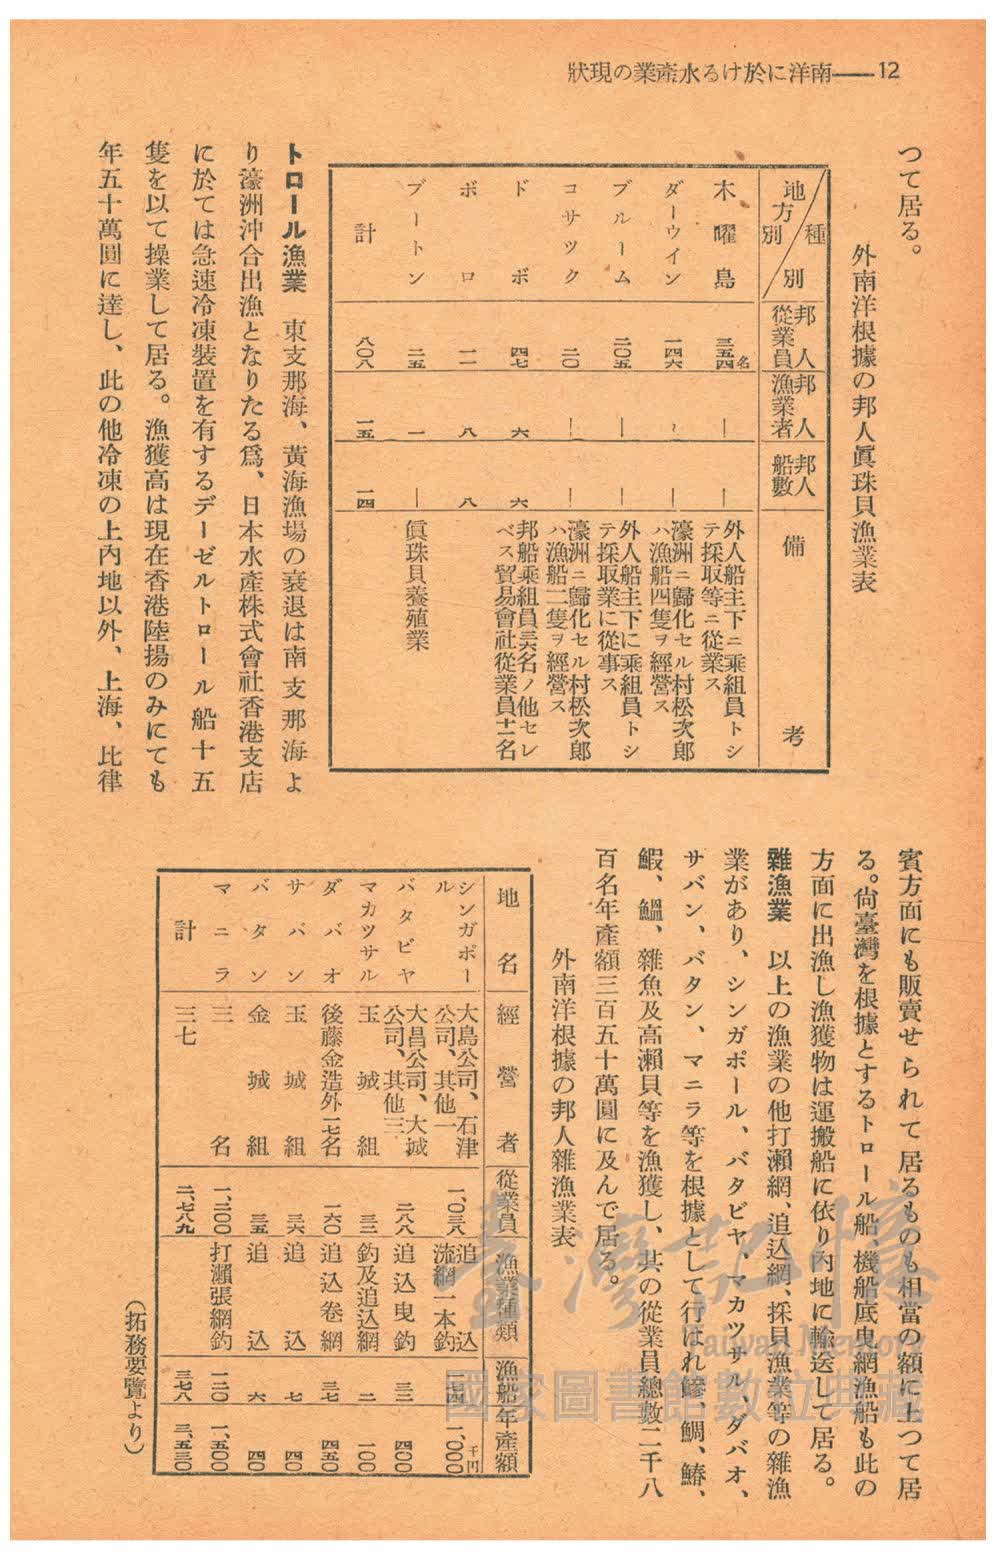 12――南洋に於ける水產業の現狀
つて居る。
外南洋根據の邦人眞珠貝漁業表
種別
地方別
邦人從業員
邦人漁業者
邦人船數
備考
木曜島 三五四名 ― ― 外人船主下ニ乘組員トシテ採取等ニ從業ス
ダーウイン 一四六 ― 濠洲ニ歸化セル村松次郎ハ漁船四隻ヲ經營ス
ブルーム 二〇五 ― ― 外人船主下に乘組員トシテ採取業に從事ス
コサツク 二〇 ― ― 濠洲ニ歸化セル村松次郎ハ漁船二隻ヲ經營ス
ドボ 四七 六 六 邦船乘組員三六名ノ他セレベス貿易會社從業員十一名
ボロ 一一 八 八
ブートン 二五 一 ― 眞珠貝養殖業
計 八〇八 一五 一四
トロール漁業 東支那海、黃海漁場の衰退は南支那海よ
り濠洲沖合出漁となりたる爲、日本水產株式會社香港支店
に於ては急速冷凍裝置を有するデーゼルトロール船十五
隻を以て操業して居る。漁獲高は現在香港陸揚のみにても
年五十萬圓に達し、此の他冷凍の上內地以外、上海、比律
賓方面にも販賣せられて居るものも相當の額に上つて居
る。尙臺灣を根據とするトロール船、機船底曳網漁船も此の
方面に出漁し漁獲物は運搬船に依り內地に輸送して居る。
雜漁業 以上の漁業の他打瀨網、追込網、採貝漁業等の雜漁
業があり、シンガポール、バタビヤ、マカツサル、ダバオ、
サバン、バタン、マニラ等を根據として行はれ鰺、鯛、鰆、
鰕、鰮、雜魚及高瀨貝等を漁獲し、其の從業員總數二千八
百名年產額三百五十萬圓に及んで居る。
外南洋根據の邦人雜漁業表
地名 經營者 從業員 漁業種類 漁船 年產額
シンガポール 大島公司、石津公司、其他一 一、〇三八 追込流網一本釣 一七四 一、〇〇〇千円
バタビヤ 大昌公司、大誠公司、其他三 二八八 追込曳釣 三二 四〇〇
マカツサル 玉城組 三二 釣及追込網 二 一〇〇
ダバオ 後藤金造外一七名 一六〇 追込卷網 三七 四五〇
サバン 玉城組 三六 追込 七 四〇
バタン 金城組 三五 追込 六 四〇
マニラ 三名 一、二〇〇 打瀨張網釣 一二〇 一、五〇〇
計 三七 二、七八九 三七八 三、五三〇
(拓務要覽より)
臺灣記憶
Taiwan Memory
國家圖書館數位典藏